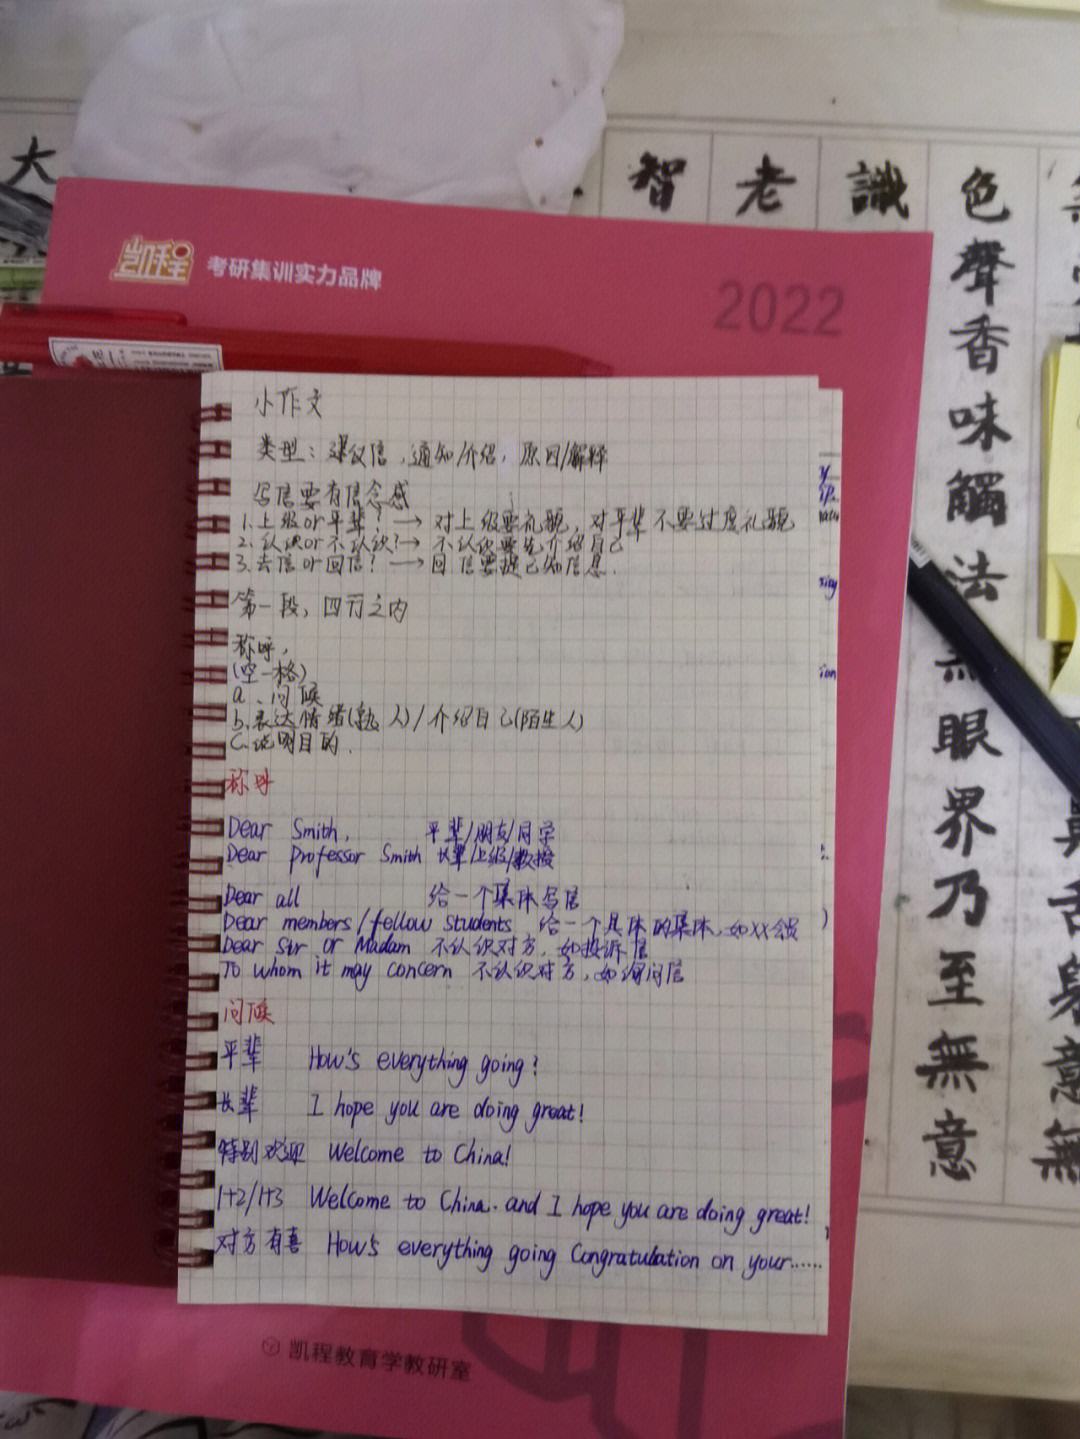 大
智 老 識
色聲香味觸法
無眼界乃至無意
凯程 考研集训实力品牌
2022
小作文
类型：建议信，通知/介绍，原因/解释
写信要有信念感
1.上级or平辈？→ 对上级要礼貌，对平辈不要过度礼貌
2.认识or不认识？→ 不认识要先介绍自己
3.去信or回信？→ 回信要提已知信息．
第一段，四行之内
称呼，
(空一格)
a．问候
b.表达情绪(熟人)/介绍自己(陌生人)
C.说明目的．
称呼
Dear Smith, 平辈/朋友/同学
Dear professor Smith 长辈/上级/教授
Dear all 给一个集体写信
Dear members/fellow students 给一个具体的集体，如XX领
Dear Sir or Madam 不认识对方，如投诉信
To whom it may concern 不认识对方，如询问信
问候
平辈 How's everything going?
长辈 I hope you are doing great!
特别欢迎 Welcome to China!
1+2/1+3 Welcome to China. and I hope you are doing great!
对方有喜 How's everything going Congratulation on your……
凯程教育学教研室